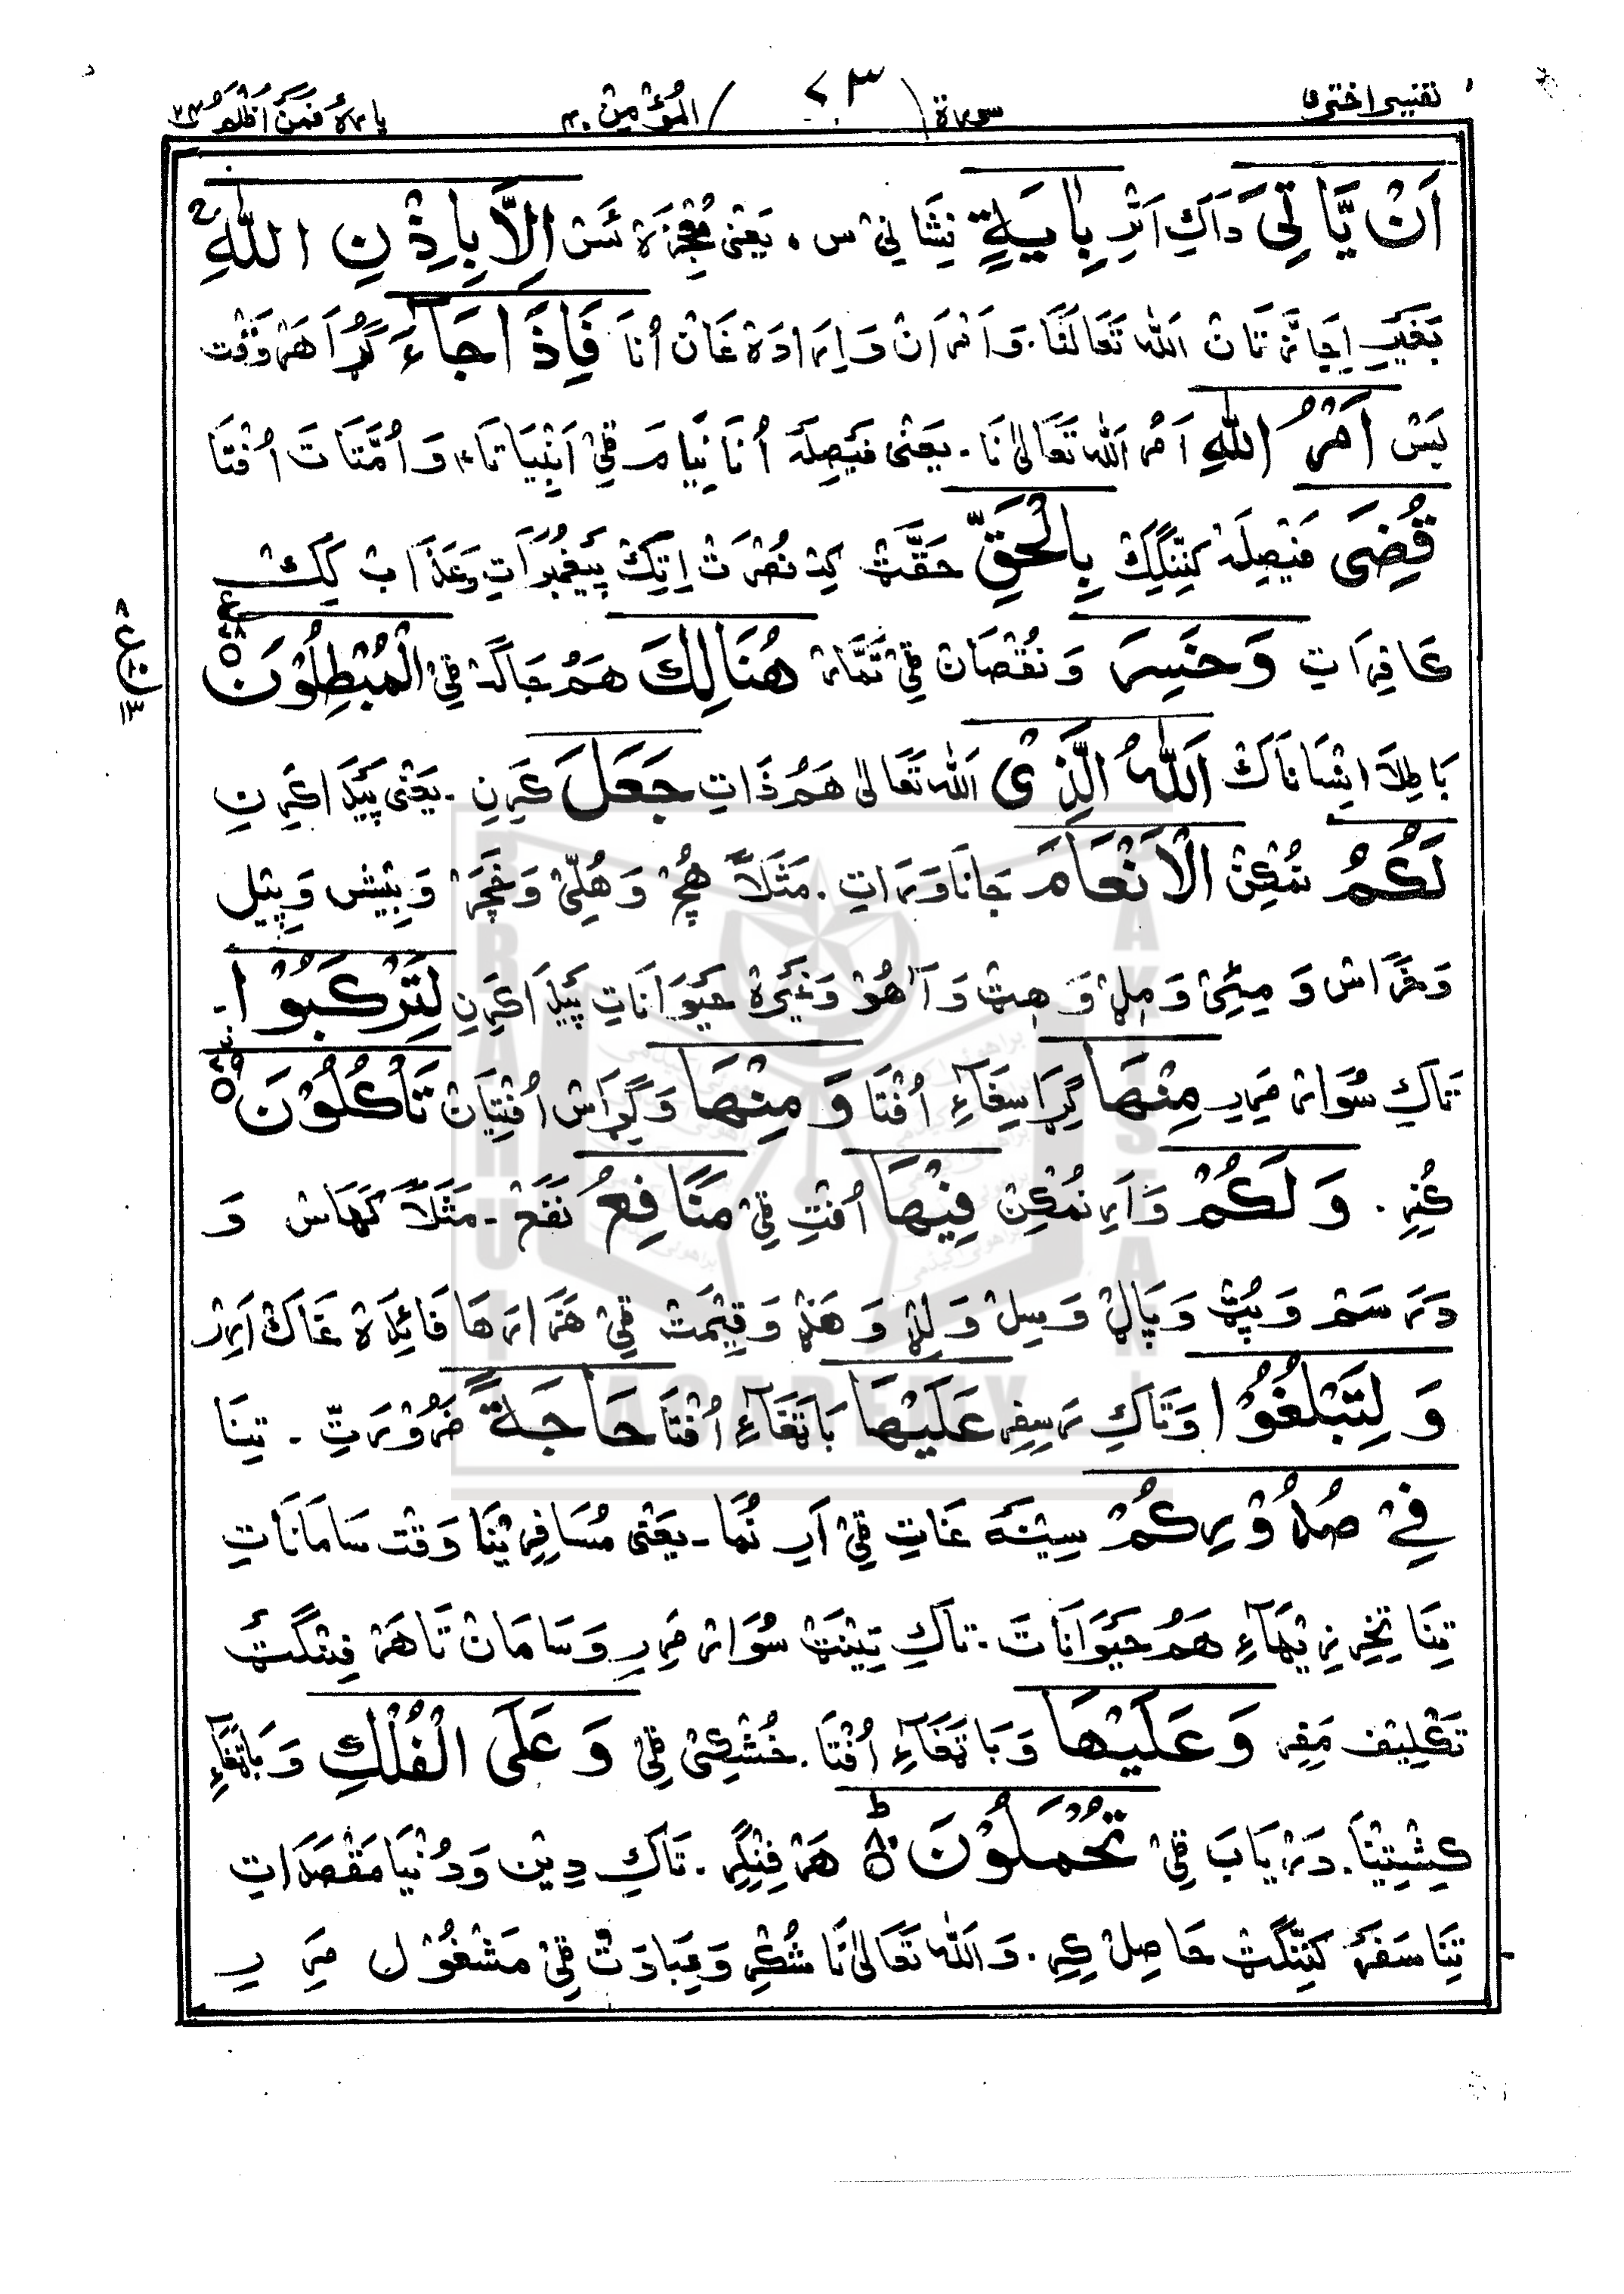 تفسیر اختری سورة المؤمن ۴۰ پارہ فَمَنْ اَظْلَمُ ۲۴
۷۳
اَنْ يَّاْتِیَ دَاکِ اَتْرِ بِاٰيَةٍ نِشَانِیْ س ۔ یَعْنِیْ مُعْجِزَہ ئَسْ اِلَّا بِاِذْنِ اللّٰهِ ج
بَغَیرِ اِجَازَتَانْ اَللّٰہ تَعَالَنَا ۔ وَ اِرَادَہ غَانْ اُنَا فَاِذَا جَآءَ گُڑَا هَرْ وَقْت
بَسْ اَمْرُ اللّٰهِ اَمُر اَللّٰہ تَعَالٰی نَا ۔ یَعْنِیْ فَیْصِلَہ اُنَا نِیَامَ ٹِیْ اَنْبِیَاتَا وَ اُمَّتَاتَ اُفْتَا
قُضِیَ فَیْصِلَہ کِنِّنگِکْ بِالْحَقِّ حَقَّٹْ کِہ نُصْرَتْ اِتِکْ پَیْغَمْبَرَاتِ وَعَذَابْ کِکْ
کَافِرَاتِ وَخَسِرَ وَ نُقْصَانْ ٹِیْ تَمَّارْ هُنَالِكَ هَمُو جَاگَہ ٹِیْ الْمُبْطِلُوْنَ ۷۸
بَاطِلَا اِنْسَانَاکْ اَللّٰهُ الَّذِیْ اَللّٰہ تَعَالٰی هَمُو ذَاتِ جَعَلَ کَرِنِ ۔ یَعْنِیْ پَیْدَا کَرِنِ
لَكُمُ نُمْکِنْ الْاَنْعَامَ جَانَاوَرَاتِ ۔ مَثَلًا هُچْ وَ هُلِّیْ وَ خَچَرْ وَ بِیْش وَ پِیْل
وَ خَرَاسْ وَ مِیْئِیْ وَ مِلْ وَ هِیٹْ وَ آهُوْ وَ غَیْرَہ حَیْوَانَاتِ پَیْدَا کَرِنِ لِتَرْكَبُوْا
تَاکِ سُوَارْ مَرِیرِ مِنْهَا گِڑَاسِغَاءِ اُفْتَا وَ مِنْهَا وَ گِڑَاسْ اُفْتِیَانْ تَاْكُلُوْنَ ۷۹
کُنِرِ ۔ وَ لَكُمْ وَ اَرِ نُمْکِنْ فِیْهَا اُفْتِ ٹِیْ مَنَافِعُ نَفَعْ ۔ مَثَلًا کَهَاسْ وَ
دَرَسَمْ وَ پُٹْ وَ پَالْ وَ سِلْ وَ وَ هَڈْ وَ قِیْمَتْ ٹِیْ هَزَارْهَا فَائِدَہ غَاکْ اَرِیرْ
وَ لِتَبْلُغُوْا وَ تَاکِ رَسِفِرِ عَلَیْهَا بَاتَغَآءِ اُفْتَا حَاجَةً ضَرُوْرَتِّ ۔ تِنَا
فِیْ صُدُوْرِكُمْ سِیْنَہ غَاتِ ٹِیْ اَرِ نُمَا ۔ یَعْنِیْ مُسَافِرِیْنَا وَقْت سَامَانَاتِ
تِنَا تِخِرِ هَمُو حَیْوَانَاتَ ۔ تَاکِ تِیْنَٹْ سُوَارْ مَرِیرِ وَ سَامَانْ تَا هَرْفِنْگَٹْ
تَکْلِیْف مَفِرِ وَ عَلَیْهَا وَ بَاتَغَآءِ اُفْتَا ۔ خُشْکِیْ ٹِیْ وَ عَلَی الْفُلْكِ وَ بَاتَغَآءِ
کِشْتِیْنَا ۔ دَرْیَابَ ٹِیْ تُحْمَلُوْنَ ۸۰ ط هَرْفِنْگِرِ ۔ تَاکِ دِیْن وَ دُنْیَا مَقْصَدَاتِ
تِنَا سَفَرْ کَنِنِّگَٹْ حَاصِلْ کِرِ ۔ وَ اَللّٰہ تَعَالٰی نَا شُکْر وَ عِبَادَتْ ٹِیْ مَشْغُوْل مَرِیرِ
BRAHUI
ACADEMY